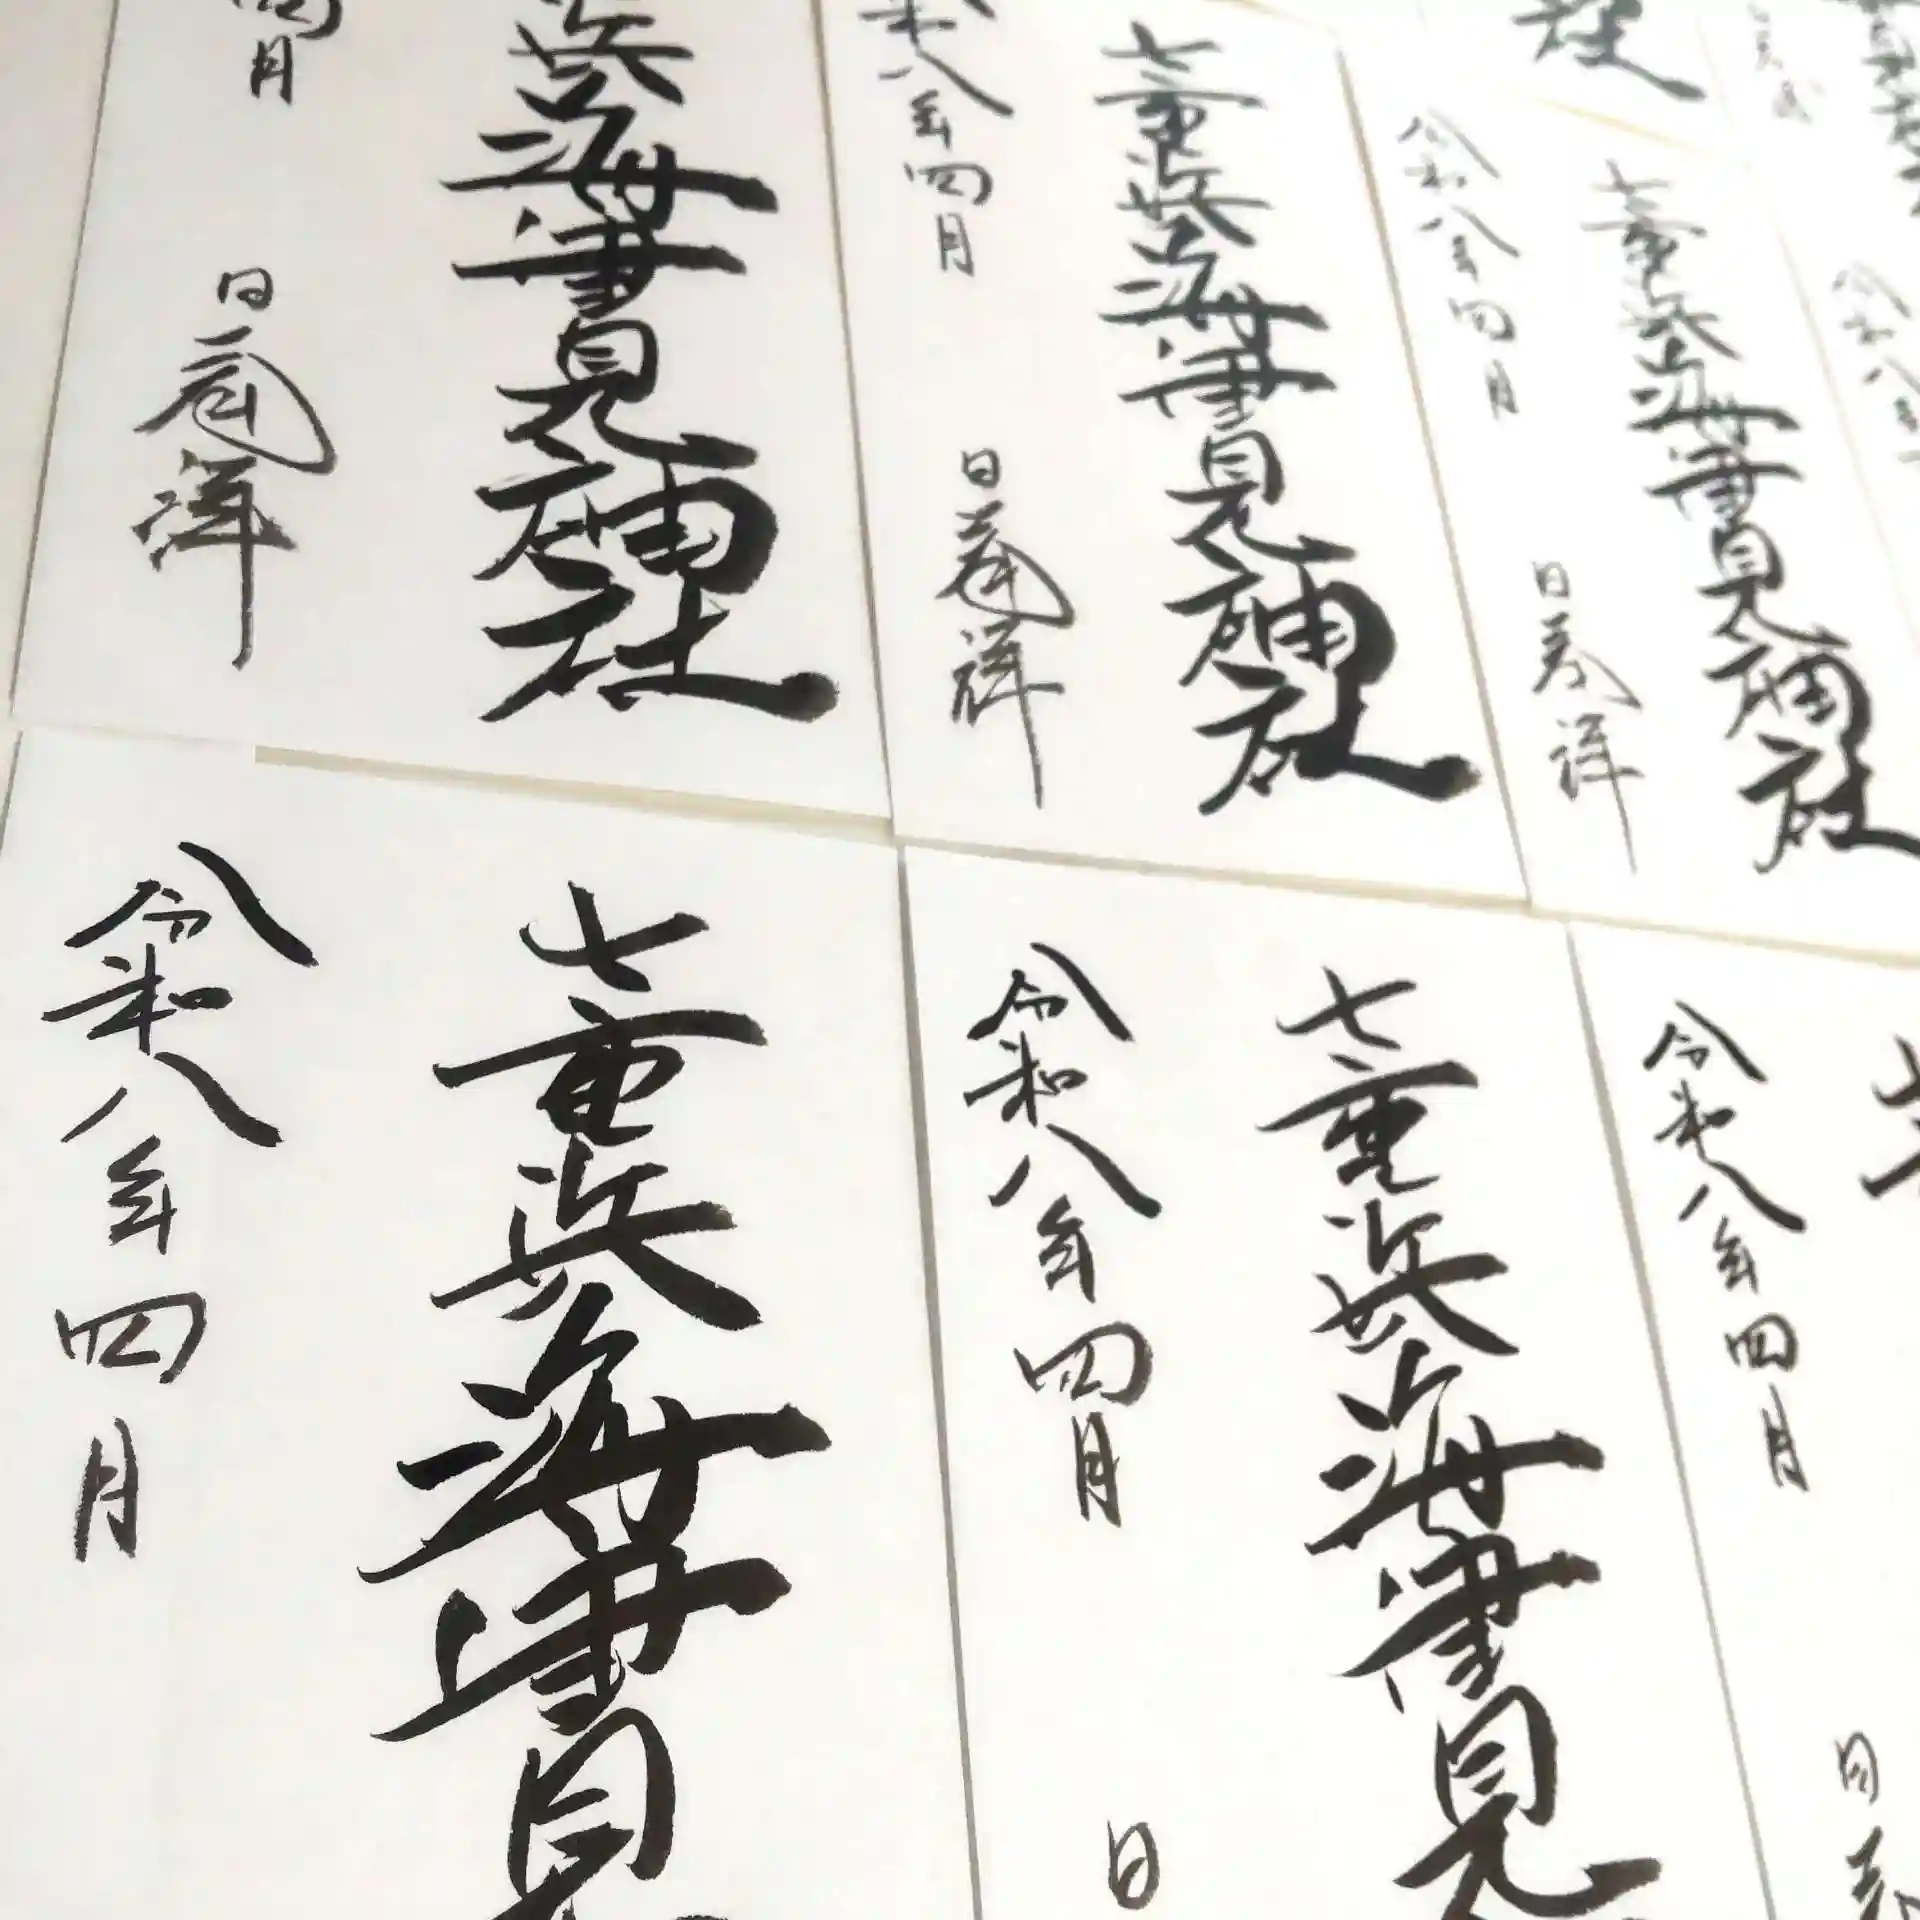 浜海津見神社
四月 日
七重浜海津見神社
和八年四月 日
七重浜海津見神社
令和八年四月 日
令和八年
七重浜海津見
令和八年四月
七重浜海津見
令和八年四月 日
令和八年四月 日